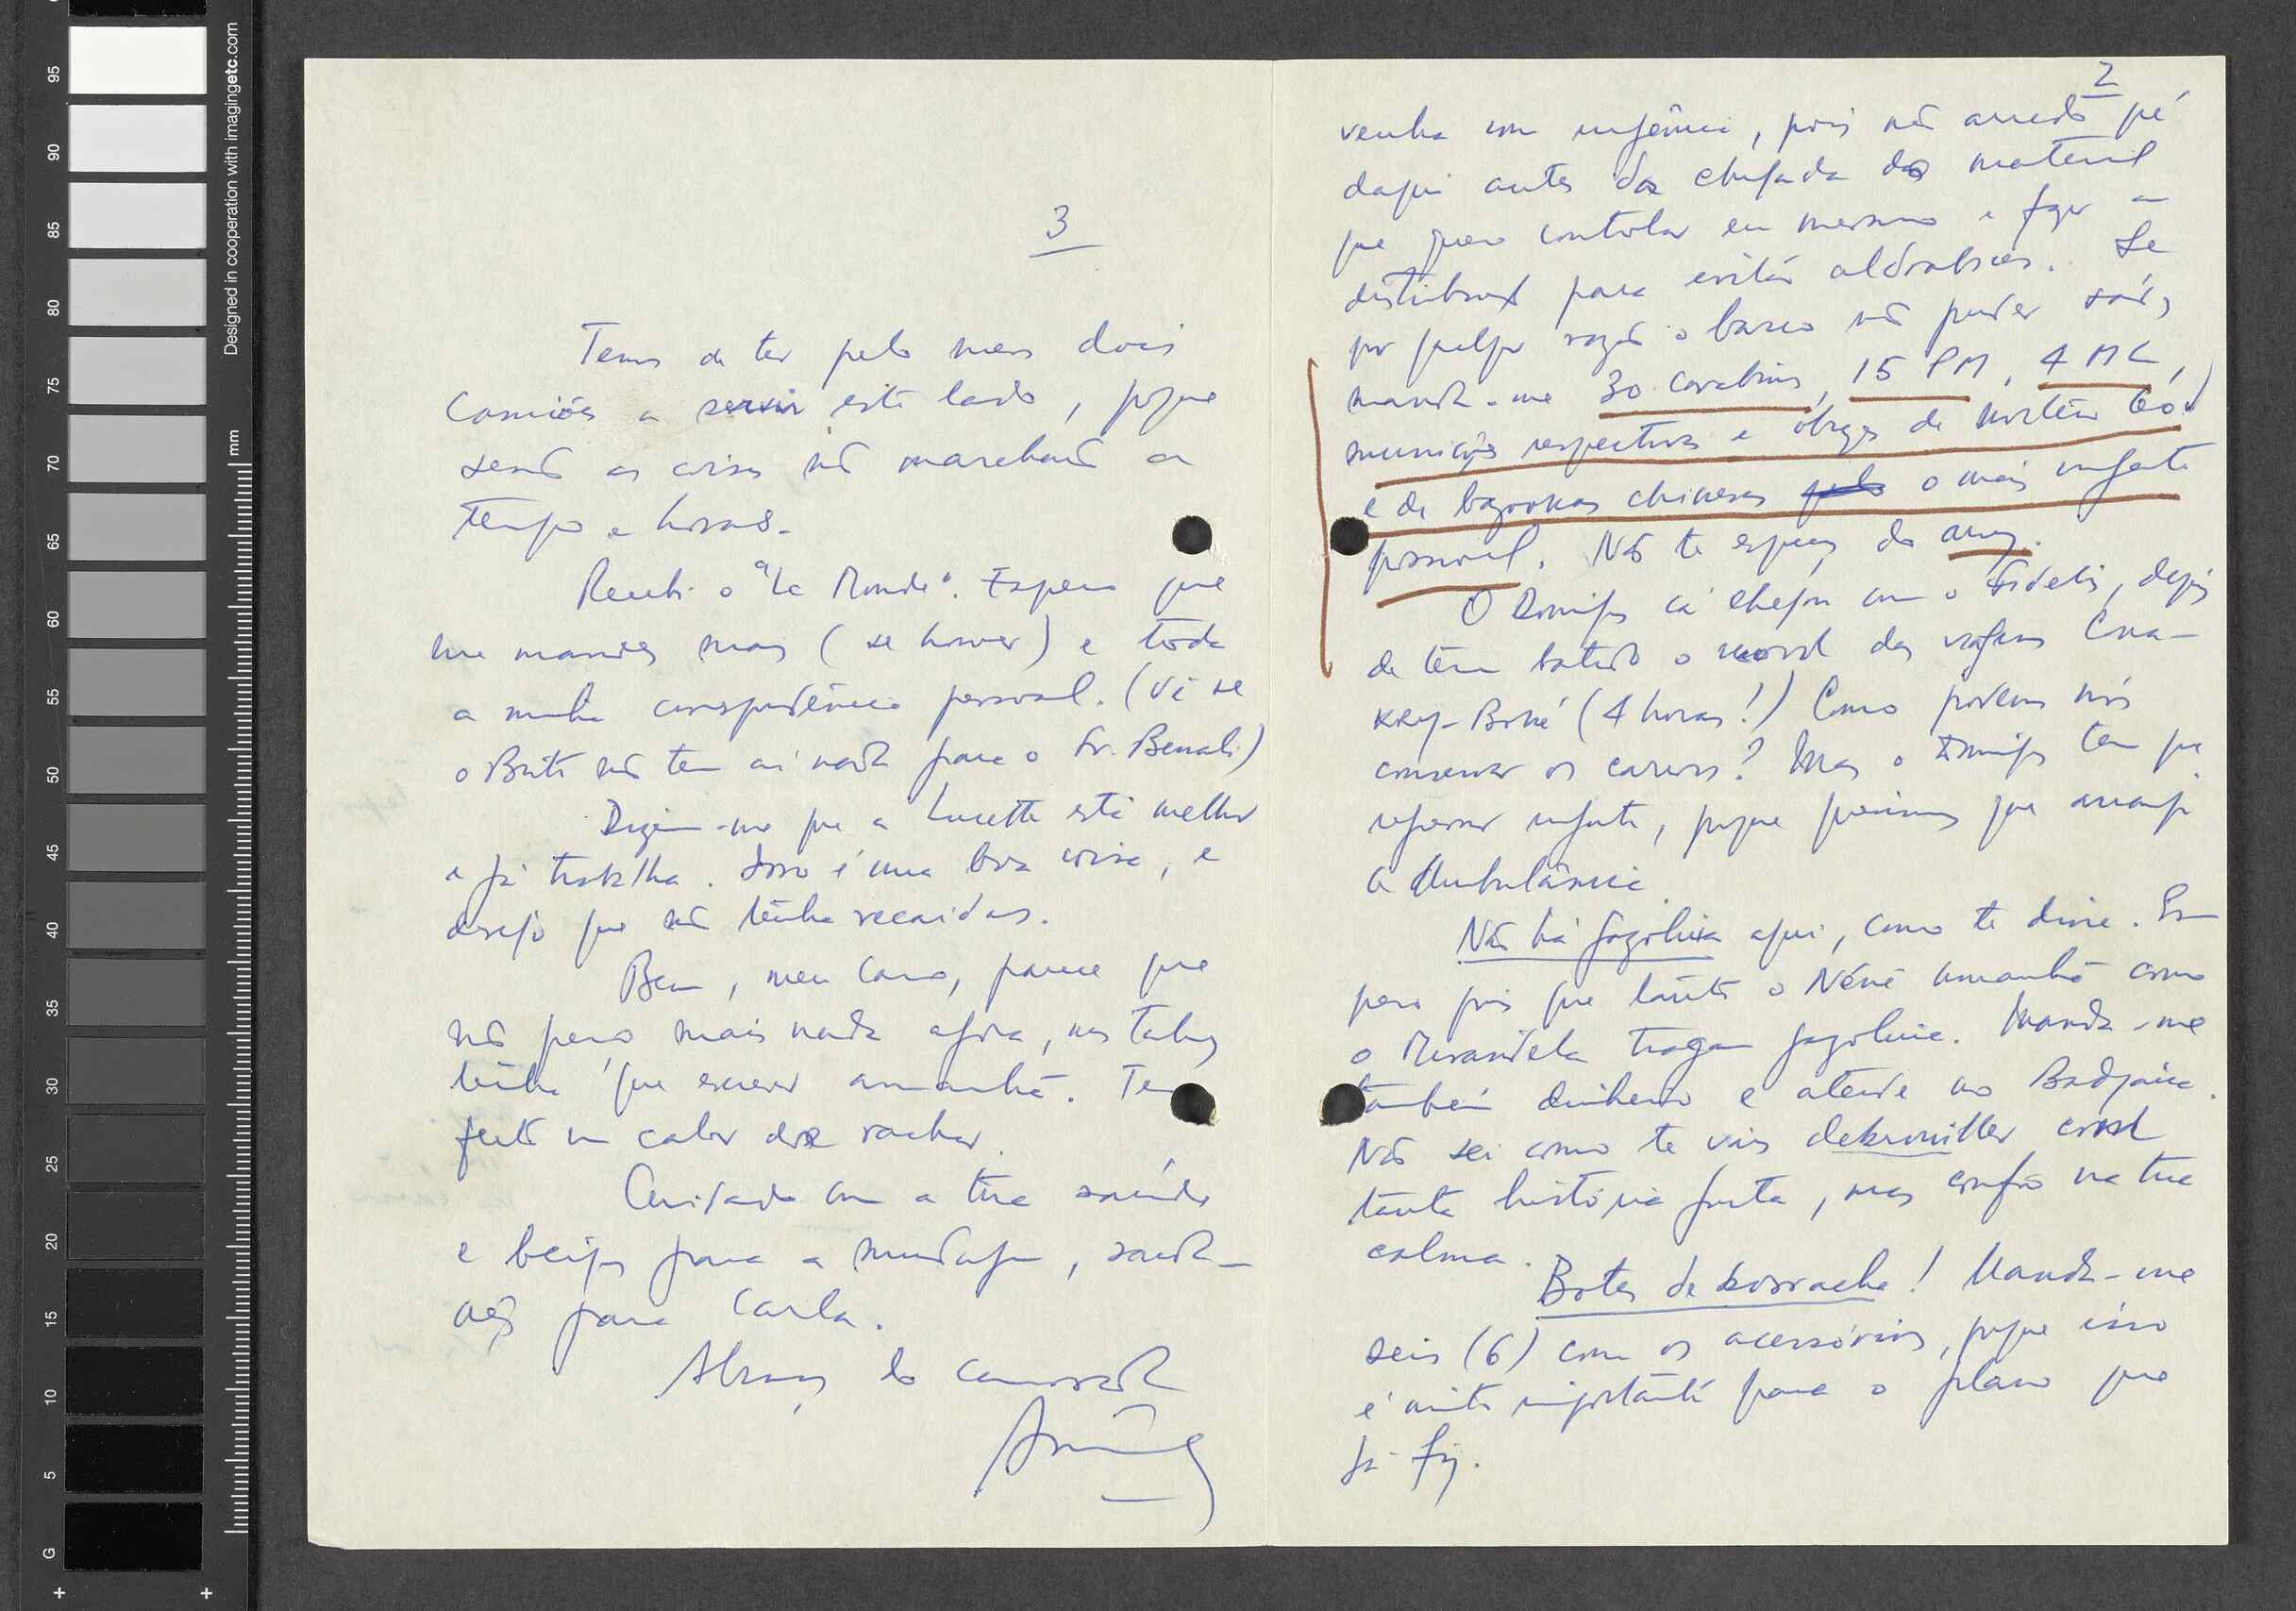 95
90
85
80
75
70
65
60
55
50
45
40
35
30
25
20
15
10
5
G
Designed in cooperation with imagingetc.com
mm
3
Temos de ter pelo menos dois
camiões a servir este lado, porque
senão as coisas não marcharão a
tempo e horas.
Recebi o "Le Monde". Espero que
me mandes mais (se houver) e toda
a minha correspondência pessoal. (Vê se
o Brito não tem aí nada para o Sr. Benali)
Dizem-me que a Lucette está melhor
e já trabalha. Isso é uma boa coisa, e
desejo que não tenha recaídas.
Bem, meu caro, parece que
não peço mais nada agora, mas talvez
tenha que escrever amanhã. Tem
feito um calor de rachar.
Cuidado com a tua saúde
e beijos para a , saud-
ações para Carla.
Abraços do camarada
2
venha com urgência, pois não arredo pé
daqui antes da chegada do material
que quero controlar eu mesmo e fazer a
distribuição para evitar aldrabices. Se
por qualquer razão o barco não puder sair,
manda-me 30 carabinas, 15 PM, 4 ML,
munições respectivas e obuzes de mortéiro 60)
e de bazookas chinesas pelo o mais urgente
possível. Não te esqueças do arroz.
O Domingos cá chegou com o Fidelis, depois
de têm batido o record das viagens Cona-
kry-Boké (4 horas!) Como podemos nós
conservar os carros? Mas o Domingos tem que
regressar urgente, porque precisamos que arranje
a Ambulância.
Não há gazolina aqui, como te disse. Es-
pero pois que tanto o Néné amanhã como
o Mirandela tragam gazolina. Manda-me
também dinheiro e atende ao Badjana.
Não sei como te vais débrouiller com
tanta história junta, mas confio na tua
calma.
Botes de borracha! Manda-me
seis (6) com os acessórios, porque isso
é muito importante para o plano que
já fiz.